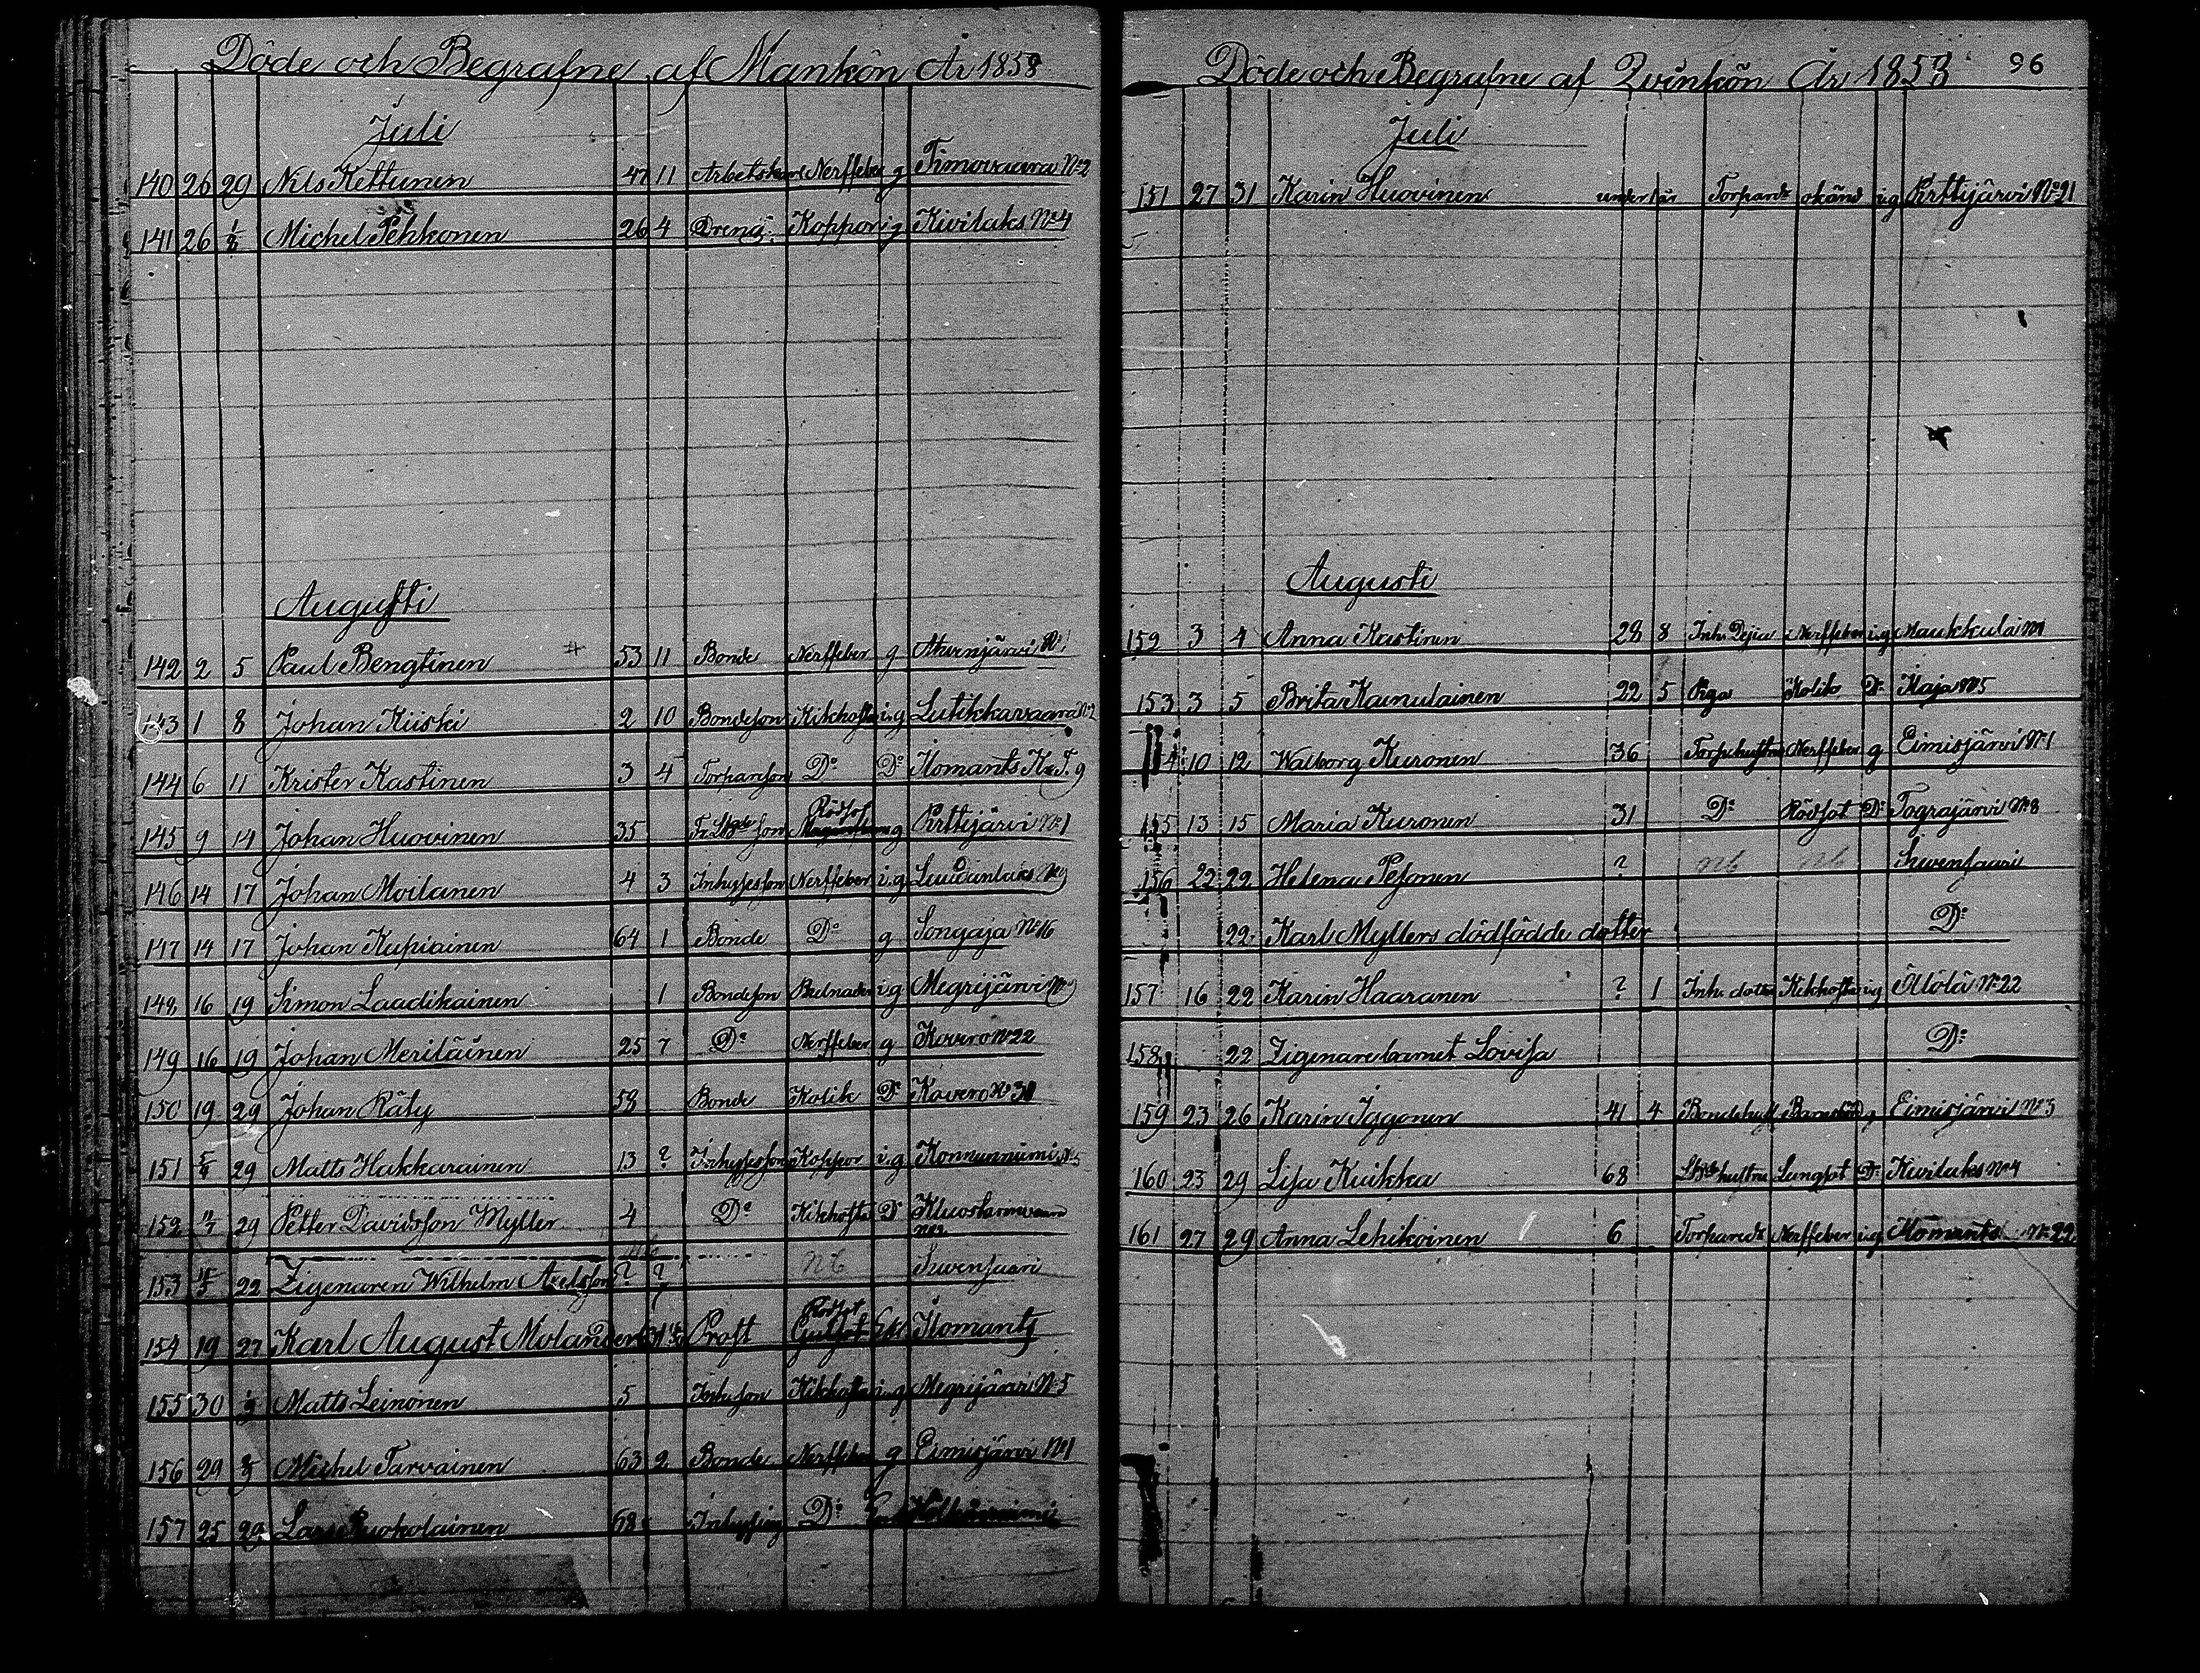 Döde och Begrafne af Mankön År 1858
Juli
140 26 29 Nils Kettunen 47 11 Arbetskarl Nerffeber g Timovaara No 2
141 26 1/8 Michel Pehkonen 26 4 Dreng Koppor ig Kivilaks No 4
Augusti
142 2 5 Paul Bengtinen # 53 11 Bonde Nerffeber g
143 1 8 Johan Kiiski 2 10 Bondeson Kikhosta i.g Lutikkavaara No 2
144 6 11 Krister Kastinen 3 4 Torparson Do Do Ilomants
145 9 14 Johan Huovinen 35 son Rödsot g Pirttijärvi No 1
146 14 17 Johan Moilanen 4 3 Inhyseson Nerffeber i.g
147 14 17 Johan Kupiainen 64 1 Bonde Do g Songaja No 16
148 16 19 Simon Laadikainen 1 Bondeson i.g Megrijärvi No 9
149 16 19 Johan Meriläinen 25 7 Do Nerffeber g Kovero No 22
150 19 29 Johan Räty 58 Bonde Kolik Do Kovero No
151 29 Matts Hakkarainen 13 ? Inhyseson Koppor i.g
152 29 Petter Davidsson Myller 4 Do Kikhosta Do
153 22 Zigenaren Wilhelm Axelsson ? ? nb
154 19 27 Karl August Molander Prost Rödsot Ilomants
155 30 1/9 Matts Leinonen 5 Inh. son Kikhosta i.g Megrijärvi No 5
156 29 Michel Tarvainen 63 2 Bonde Nerffeber g Eimisjärvi No 1
157 25 29 Lars Ruokolainen 68 Inhysing Do
Döde och Begrafne af Qvinkön År 1858 96
Juli
151 27 31 Karin Huovinen under 1 år Torpardr okänd i.g Pirttijärvi No 21
Augusti
152 3 4 Anna Kastinen 28 8 Nerffeber i.g Maukkula No 1
153 3 5 Brita Kainulainen 22 5 Piga Kolik Do No 5
4 10 12 Walborg Kuronen 36 Nerffeber g Eimisjärvi No 1
155 13 15 Maria Kuronen 31 Do Rödsot Do No 8
156 22 22 Helena Pesonen ? nb nb
22 Karl Myllers dödfödde dotter Do
157 16 22 Karin Haaranen ? 1 Inh. dotter Kikhosta i.g No 22
158 22 Zigenarebarnet Lovisa Do
159 23 26 Karin Iggonen 41 4 g Eimisjärvi No 3
160 23 29 Lisa Kuikka 68 hustru Lungsot Do Kivilaks No 4
161 27 29 Anna Lehikoinen 6 Torparedr Nerffeber i.g Ilomants No 22